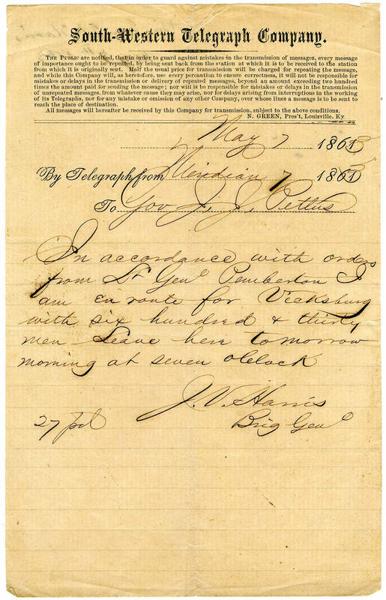 South-Western Telegraph Company.
THE PUBLIC are notified, that in order to guard against mistakes in the transmission of messages, every message
of importance ought to be repeated, by being sent back from the station at which it is to be received to the station
from which it is originally sent. Half the usual price for transmission will be charged for repeating the message,
and while this Company will, as heretofore, use every precaution to ensure correctness, it will not be responsible for
mistakes or delays in the transmission or delivery of repeated messages, beyond an amount exceeding two hundred
times the amount paid for sending the message; nor will it be responsible for mistakes or delays in the transmission
of unrepeated messages, from whatever cause they may arise, nor for delays arising from interruptions in the working
of its Telegraphs, nor for any mistake or omission of any other Company, over whose lines a message is to be sent to
reach the place of destination.
All messages hereafter be received by this Company for transmission, subject to the above conditions.
N. GREEN, Pres't, Louisville, Ky
May 7 1863
By Telegraph from Meridian 7 1863
To Gov J. J. Pettus
In accordance with orders
from Lt Genl Pemberton I
am en route for Vicksburg
with six hundred & thirty
men Leave here tomorrow
morning at seven oclock
J. V. Harris
27 pd Brig Genl